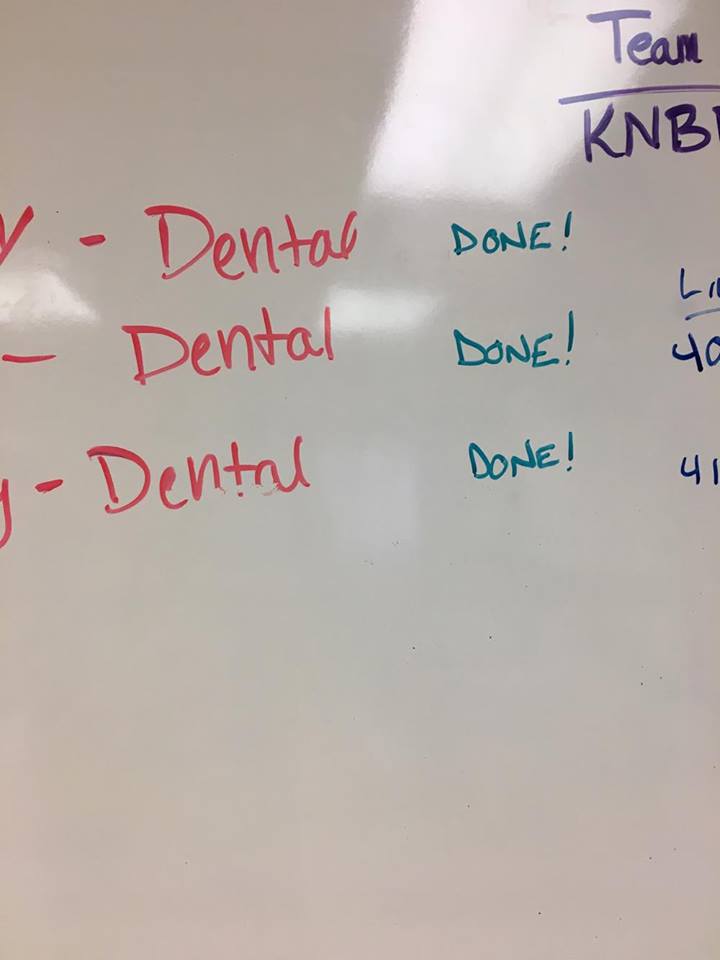 Team
KNB
y - Dental DONE!
Li
- Dental DONE!
40
y - Dental DONE!
41